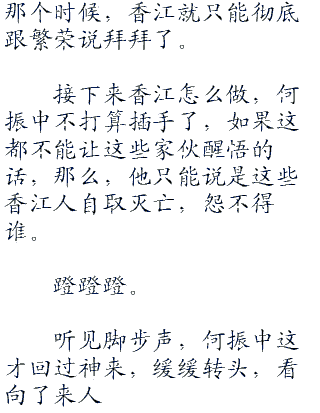 那个时候，香江就只能彻底
跟繁荣说拜拜了。
接下来香江怎么做，何
振中不打算插手了，如果这
都不能让这些家伙醒悟的
话，那么，他只能说是这些
香江人自取灭亡，怨不得
谁。
蹬蹬蹬。
听见脚步声，何振中这
才回过神来，缓缓转头，看
向了来人